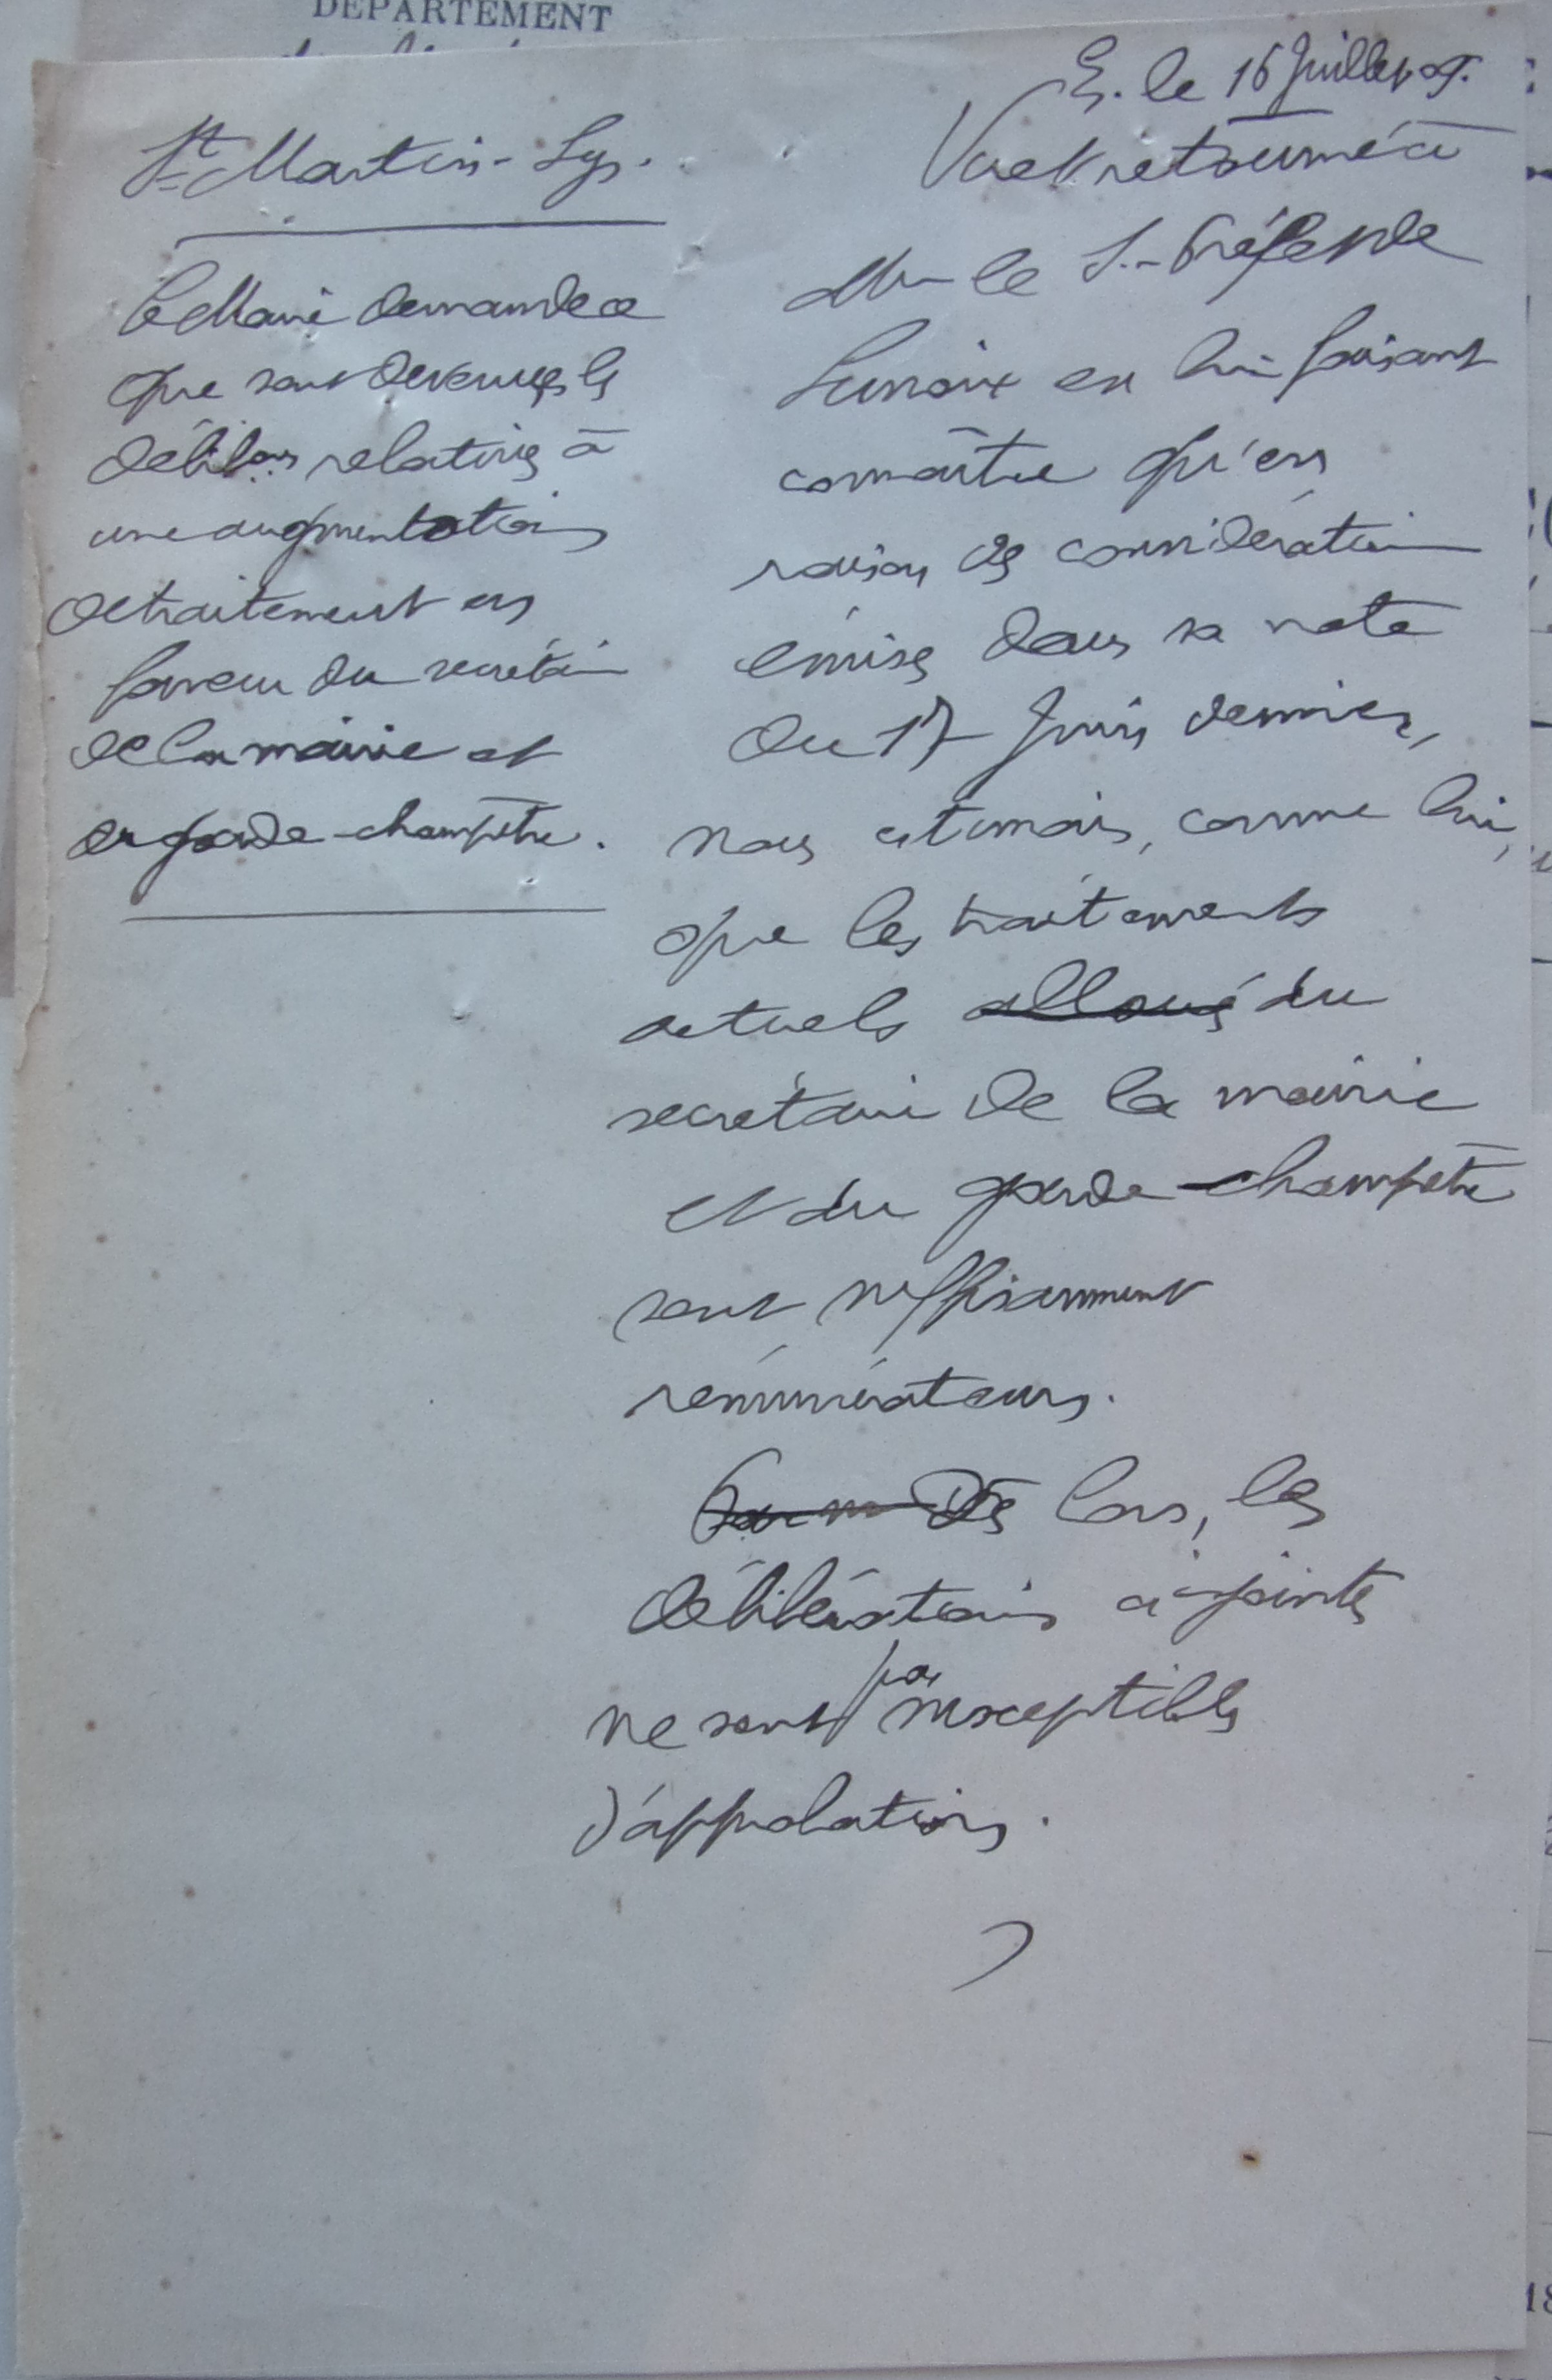 DÉPARTEMENT
St Martin-Lys.
Le Maire demande ce
que sont devenues les
délib.ons relatives à
une augmentation
de traitement en
faveur du secrétaire
de la mairie et
du garde-champêtre.
C. le 16 Juillet 09.
Vu et retourné à
Mr le S.-Préfet de
Limoux en lui faisant
connaître qu'en
raison des considérations
émises dans sa note
du 17 Juin dernier,
nous estimons, comme lui,
que les traitements
actuels alloués du
secrétaire de la mairie
et du garde-champêtre
sont suffisamment
rémunérateurs.
Dès lors, les
délibérations ci-jointes
ne sont pas susceptibles
d'approbation.